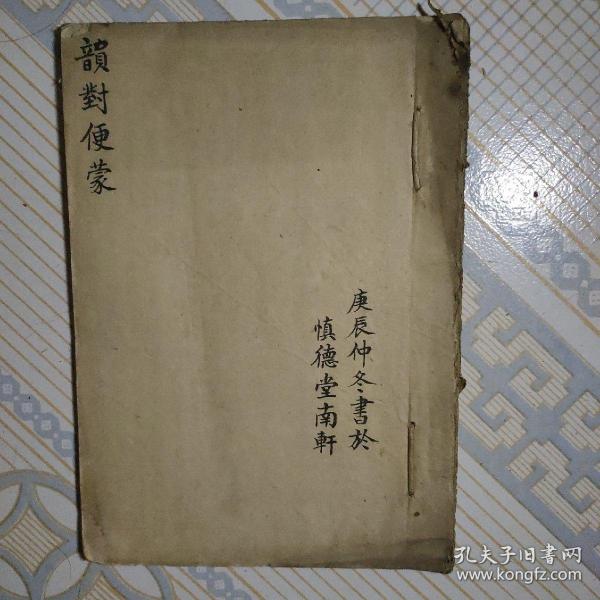 韻對便蒙
庚辰仲冬書於
慎德堂南軒
孔夫子旧書网
www.kongfz.com